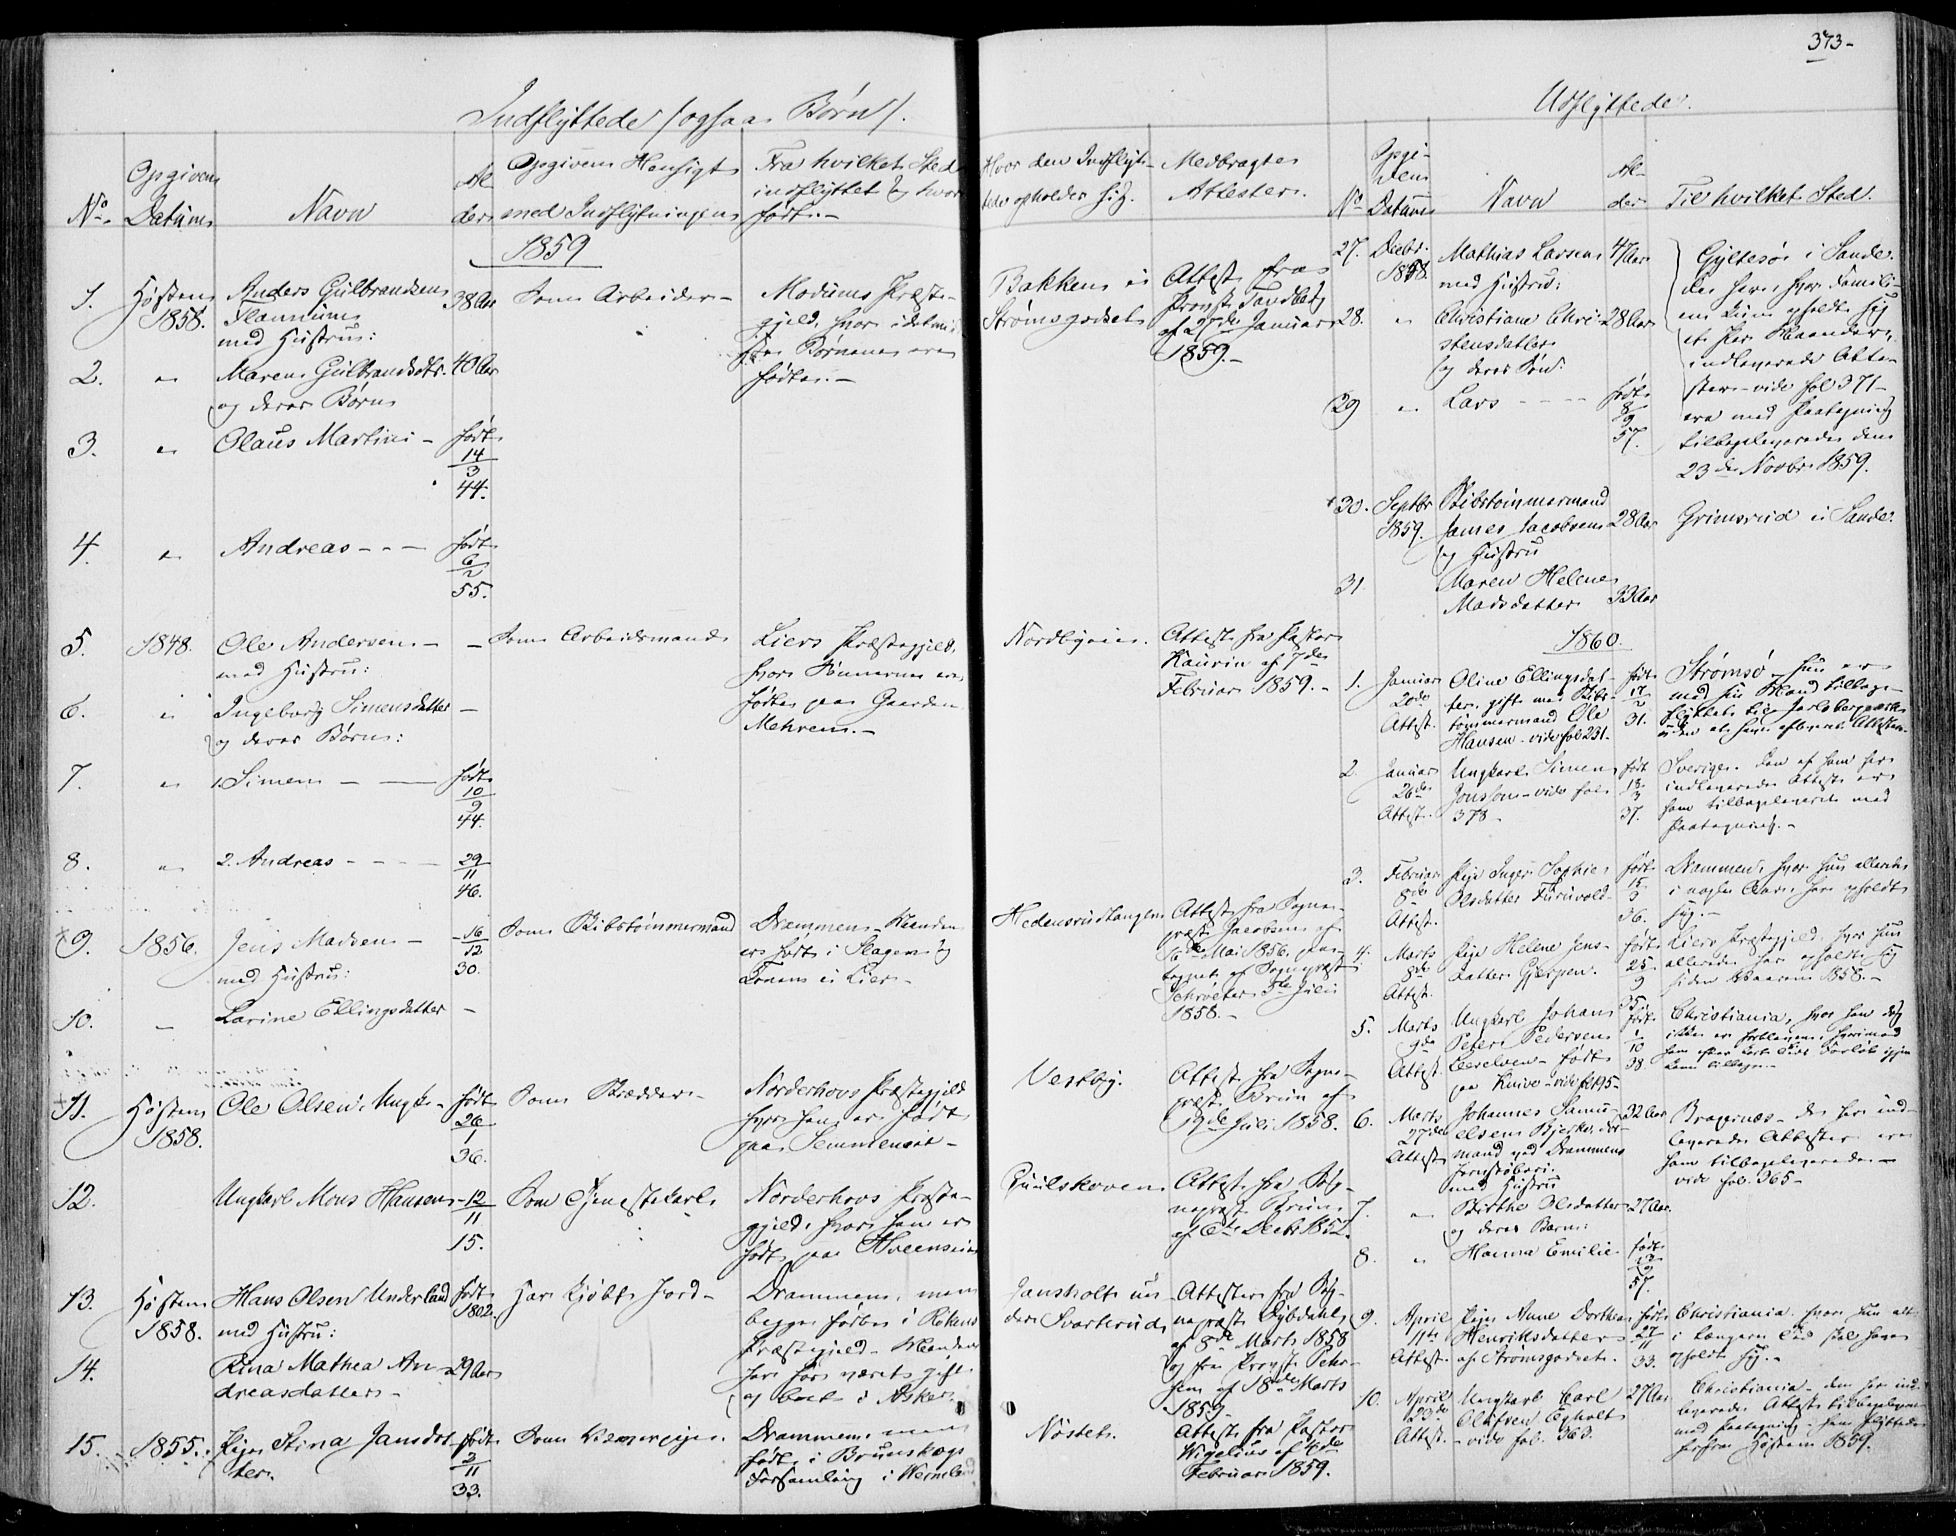 373-
Indflyttede (ogsaa Børn).
No.
Opgiven
Datum
Navn
Al-
der
Opgiven Hensigt
med Indflytningen
Fra hvilket Sted
indflyttet og hvor
født.
Hvor den Indflyt-
tede opholder sig.
Medbragte
Attester.
1859
1. Høsten 1858. Anders Gulbrandsen
med Hustru:
38 Aar
Som Arbeider-
Modums Præste-
gjeld, hvor
Børnene ere
fødte.-
Bakken i
Strømsgodset
Attest fra
Provst
af 27de Januar
1859.-
2. " Maren Gulbrandsdtr. 40 Aar
og deres Børn
3. " Olaus Martin - født
14
3
44.
4. " Andreas - - - født
6
2
55.
5. 1848. Ole Andersen -
med Hustru:
Som Arbeidsmand
Liers Præstegjeld,
hvor Sønnerne ere
fødte paa Gaarden
Mehren.-
Nordbyeie.
Attest fra Pastor
Kaurin af 7de
Februar 1859.-
6. " Ingeborg Simensdatter -
og deres Børn:
7. " 1. Simen - født
10
9
44.
8. " 2. Andreas - - - -
29
11
46.
9. 1856. Jens Madsen -
med Hustru:
16
12
30.
Som Skibstømmermand
Drammen - Manden
er født i Slagen og
Konen i Lier -
Hedensrudtangen
Attest fra Sogne-
præst Jacobsen af
6te Mai 1856, paa-
tegnet af Sognepræst
Schrøeter 5te Juli
1858.-
10. - Larine Ellingsdatter -
11. Høsten 1858. Ole Olsen, Ungk. - født
26
1
36.
Som Skrædder -
Norderhovs Præstegjeld
hvor han er født
paa Semmen
Vestby.
Attest fra Sogne-
præst Bruun af
19de Juli 1858.
12. Ungkarl Mons Hansen -
12
11
15.
Som Tjenestekarl
Norderhovs Præste-
gjeld, hvor han er
født paa
Attest fra Sog-
nepræst Bruun
af 6te Decbr 1852.
13. Høsten 1858. Hans Olsen Underland
med Hustru:
født
1802.
Har kjøbt Jord -
Drammen, men
begge fødte i Røkens
Præstegjeld - Manden
har før været gift
og boet i Asker.
Jansholt un-
der Svarterud
Attester fra Sog-
nepræst Dybdahl
af 8de Marts 1858
og fra Provst
af 18de Marts
1859-
14. Rina Mathea An-
dreasdatter -
29 Aar
15. 1855. Pige Stina Jansdat-
ter.
født
2
11
33.
Drammen, men
født i Brunskogs
Forsamling i Wermland
Nøstet.
Attest fra Pastor
Wigelius af 4de
Februar 1859.
Udflyttede.
No
Opgi-
ven
Datum
Navn
Al-
der
Til hvilket Sted.
27. Decbr. 1858. Mathias Larsen 47 Aar
med Hustru:
28. " Christiane Chri- 28 Aar
stensdatter
og deres Søn:
29 " Lars - - - - født
8
9
57.
Gyltesøe i Sande.
De herv. hvor Famili-
en kun opholdt sig
et Par Maaneder,
indleverede Atte-
ster - vide fol 371 -
ere med Paategning
tilbageleverede den
23de Novbr 1859.
30. Septbr 1859. Skibstømmermand
James Jacobsen 28 Aar
og Hustru
Grimsrud i Sande.
31. Maren Helene
Madsdatter 33 Aar
1860.
1. Januar
20de
Attest.
Oline Ellingsdat-
ter, gift med Skibs-
tømmermand Ole
Hansen - vide fol 231 -
født
17
2
31.
Strømsø, hun er
med sin Mand tilbage-
flyttet til Jarlsberg
uden at have afleveret Attesten.
2. Januar
26de
Attest.
Ungkarl Simen
Jonsson - vide fol.
378 -
født
13
3
37.
Sverige. Den af ham her
indleverede Attest er
ham tilbageleveret med
Paategning.-
3. Februar
8de
Attest.
Pige Inger Sophie
Olsdatter Furuvold -
født
15
3
36.
Drammen, hvor hun allerede
i nogle Aar har opholdt
sig.-
4. Marts
8de
Attest.
Pige Helene Jens-
datter Gjerpen.
født
25
9
35.
Liers Præstegjeld, hvor hun
allerede har opholdt sig
siden Vaaren 1858.-
5. Marts
9de
Attest.
Ungkarl Johan
Peter Pedersen
født
paa Knive - vide fol 195 -
født
1
10
38.
Christiania, hvor han dog
ikke er forbleven, hvorimod
han efter kort Tids Forløb igjen
kom tilbage -
6. Marts
27de
Attest
Johannes Samu-
elsen Bjerke, For-
mand ved Drammens
Jernstøberi.
med Hustru
32 Aar
Bragernæs - de her ind-
leverede Attester ere
ham tilbageleverede -
vide fol. 365 -
7. " Birthe Olsdatter 27 Aar
og deres Barn:
8. " Hanna Emilie født
13
2
57.
9. April
11te
Attest.
Pige Anne Dorthea
Henriksdatter
af Strømsgodset.
født
27
11
33.
Christiania. hvor hun alt
i længere Tid skal have
opholdt sig.-
10. April
23de
Attest.
Ungkarl Carl
Olufsen Egholt
- vide fol. 363.
27 Aar
Christiania - den her ind-
leverede Attest tilbageleveret
med Paategning - han flyttede
herfra Høsten 1859.